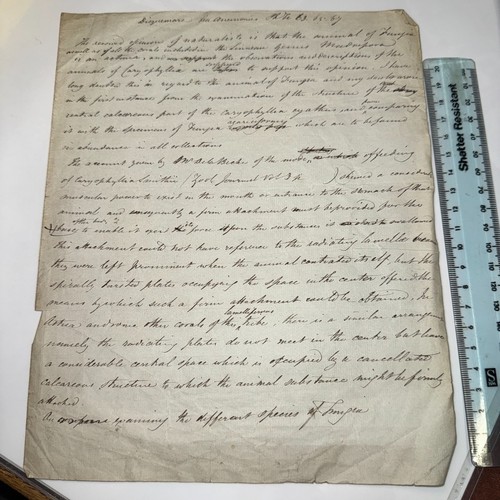 Diquemare on Anemonies Ph. Tr. 63. 65. 67
The received opinion of naturalists is that the animal of Fungia
and of all the corals included in the Linnean genus Madrepora
is an actinia, and the observations and descriptions of the
animals of Caryophyllia are supposed to support this opinion. I have
long doubted this in regard to the animal of Fungia and my
in the first instance from the examination of the structure of the
central calcareous part of the caryophyllia cyathus, and comparing
it with the specimens of Fungia which are to be found
in abundance in all collections
The account given by Mr De la Beche of the mode of feeding
of Caryophyllia Smithii (Zool Journal Vol 3 p. ) shewed a considerable
muscular power to exist in the mouth or entrance to the stomach of that
animal and consequently a firm attachment must be provided for
to enable it to exert its force upon the substances swallowed
this attachment could not have reference to the radiating lamellæ because
they were left prominent when the animal contracted itself, but the
spirally twisted plates occupying the space in the center offered the
means by which such a firm attachment could be obtained. In
Astrea and some other corals of the lamelliferous tribe, there is a similar arrangement
namely the radiating plates do not meet in the center but leave
a considerable central space which is occupied by a cancellated
calcareous structure to which the animal substance might be firmly
attached
On examining the different species of Fungia
Shatter Resistant